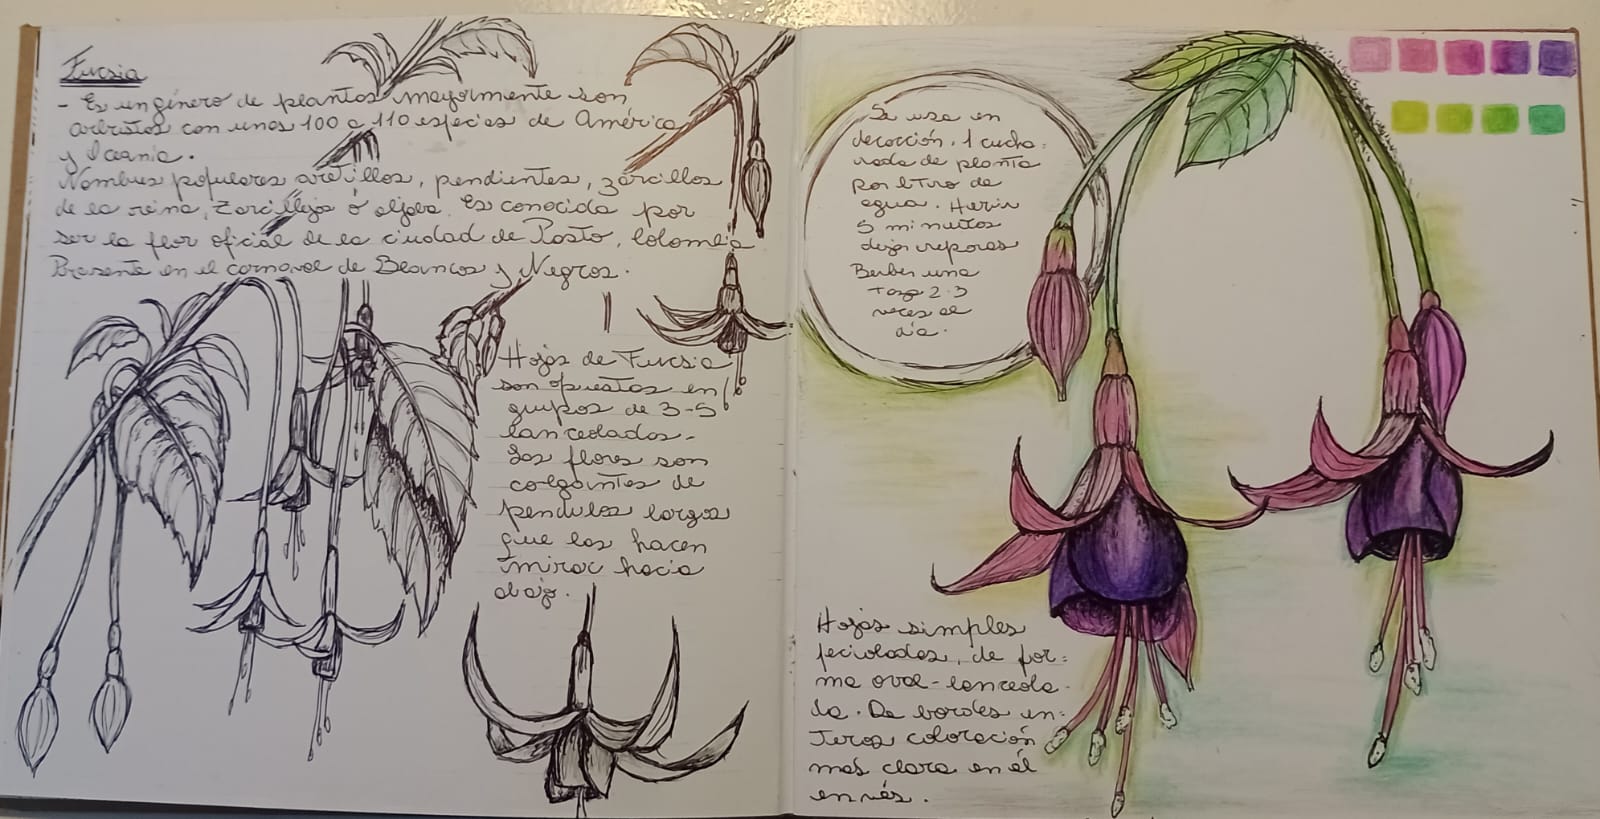 Fucsia
- Es un género de plantas mayormente son
arbustos con unos 100 a 110 especies de América
y Oceanía.
Nombres populares aretillos, pendientes, zarcillos
de la reina, zarcillejo ó aljaba. Es conocida por
ser la flor oficial de la ciudad de Pasto, Colombia
Presente en el carnaval de Blancos y Negros.
Hojas de Fucsia
son opuestas en
grupos de 3-5
lanceoladas.
Las flores son
colgantes de
pendulos largos
que las hacen
mirar hacia
abajo.
Se usa en
decocción. 1 cucha=
rada de planta
por litro de
agua. Hervir
5 minutos
dejar reposar
Beber una
taza 2-3
veces al
día.
Hojas simples
peciolades, de for=
ma oval-lanceola
da. De bordes en=
teros coloración
mas clara en el
envés.